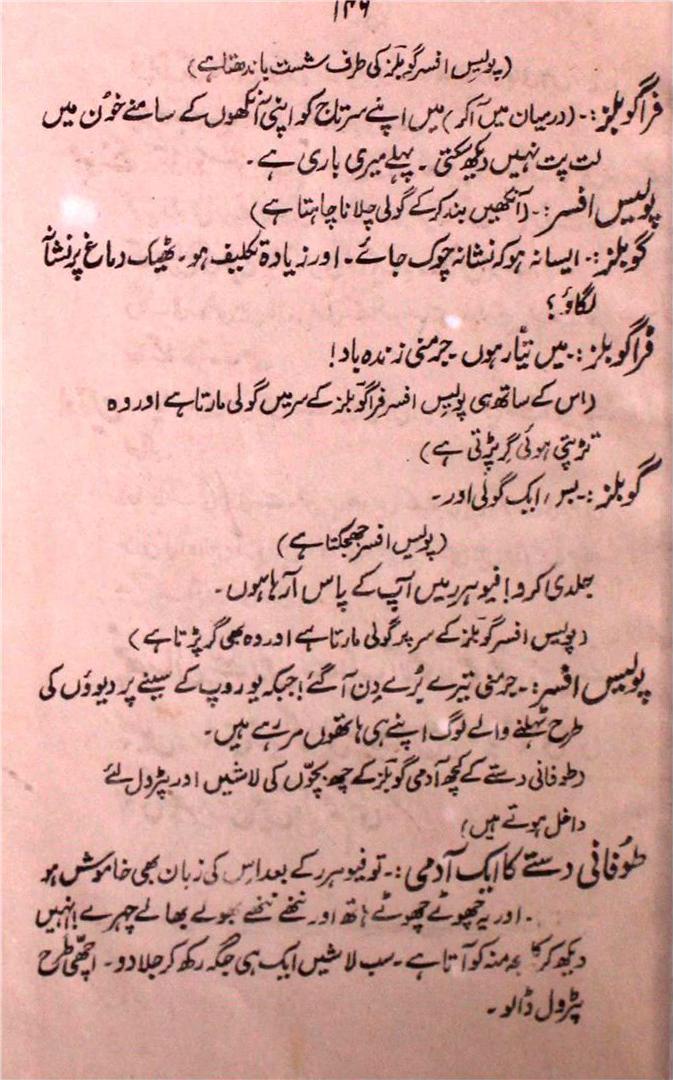 ۱۴۶
(پولیس افسر گوبلز کی طرف شست باندھتا ہے)
فراگوبلز:۔ (درمیان میں آکر) میں اپنے سرتاج کو اپنی آنکھوں کے سامنے خون میں
لت پت نہیں دیکھ سکتی ۔ پہلے میری باری ہے۔
پولیس افسر:۔ (آنکھیں بند کرکے گولی چلانا چاہتا ہے)
گوبلز:۔ ایسا نہ ہو کہ نشانہ چوک جائے۔ اور زیادہ تکلیف ہو۔ ٹھیک دماغ پر نشانہ
لگاؤ؟
فراگوبلز:۔ میں تیّار ہوں ۔ جرمنی زندہ باد!
(اس کے ساتھ ہی پولیس افسر فراگوبلز کے سر میں گولی مارتا ہے اور وہ
تڑپتی ہوئی گر پڑتی ہے)
گوبلز:۔ بس، ایک گولی اور۔
(پولیس افسر جھجکتا ہے)
جلدی کرو! فیوہرر میں آپ کے پاس آ رہا ہوں۔
(پولیس افسر گوبلز کے سر پر گولی مارتا ہے اور وہ بھی گر پڑتا ہے)
پولیس افسر:۔ جرمنی تیرے بُرے دِن آ گئے! جبکہ یوروپ کے سینے پر دیوؤں کی
طرح ٹہلنے والے لوگ اپنے ہی ہاتھوں مر رہے ہیں۔
(طوفانی دستے کے کچھ آدمی گوبلز کے چھ بچّوں کی لاشیں اور پٹرول لئے
داخل ہوتے ہیں)
طوُفانی دستے کا ایک آدمی:۔ تو فیوہرر کے بعد اس کی زبان بھی خاموش ہو
۔ اور یہ چھوٹے چھوٹے ہاتھ اور ننھے ننھے بھولے بھالے چہرے! انہیں
دیکھ کر منہ کو آتا ہے۔ سب لاشیں ایک ہی جگہ رکھ کر جلا دو۔ اچھّی طرح
پٹرول ڈالو۔